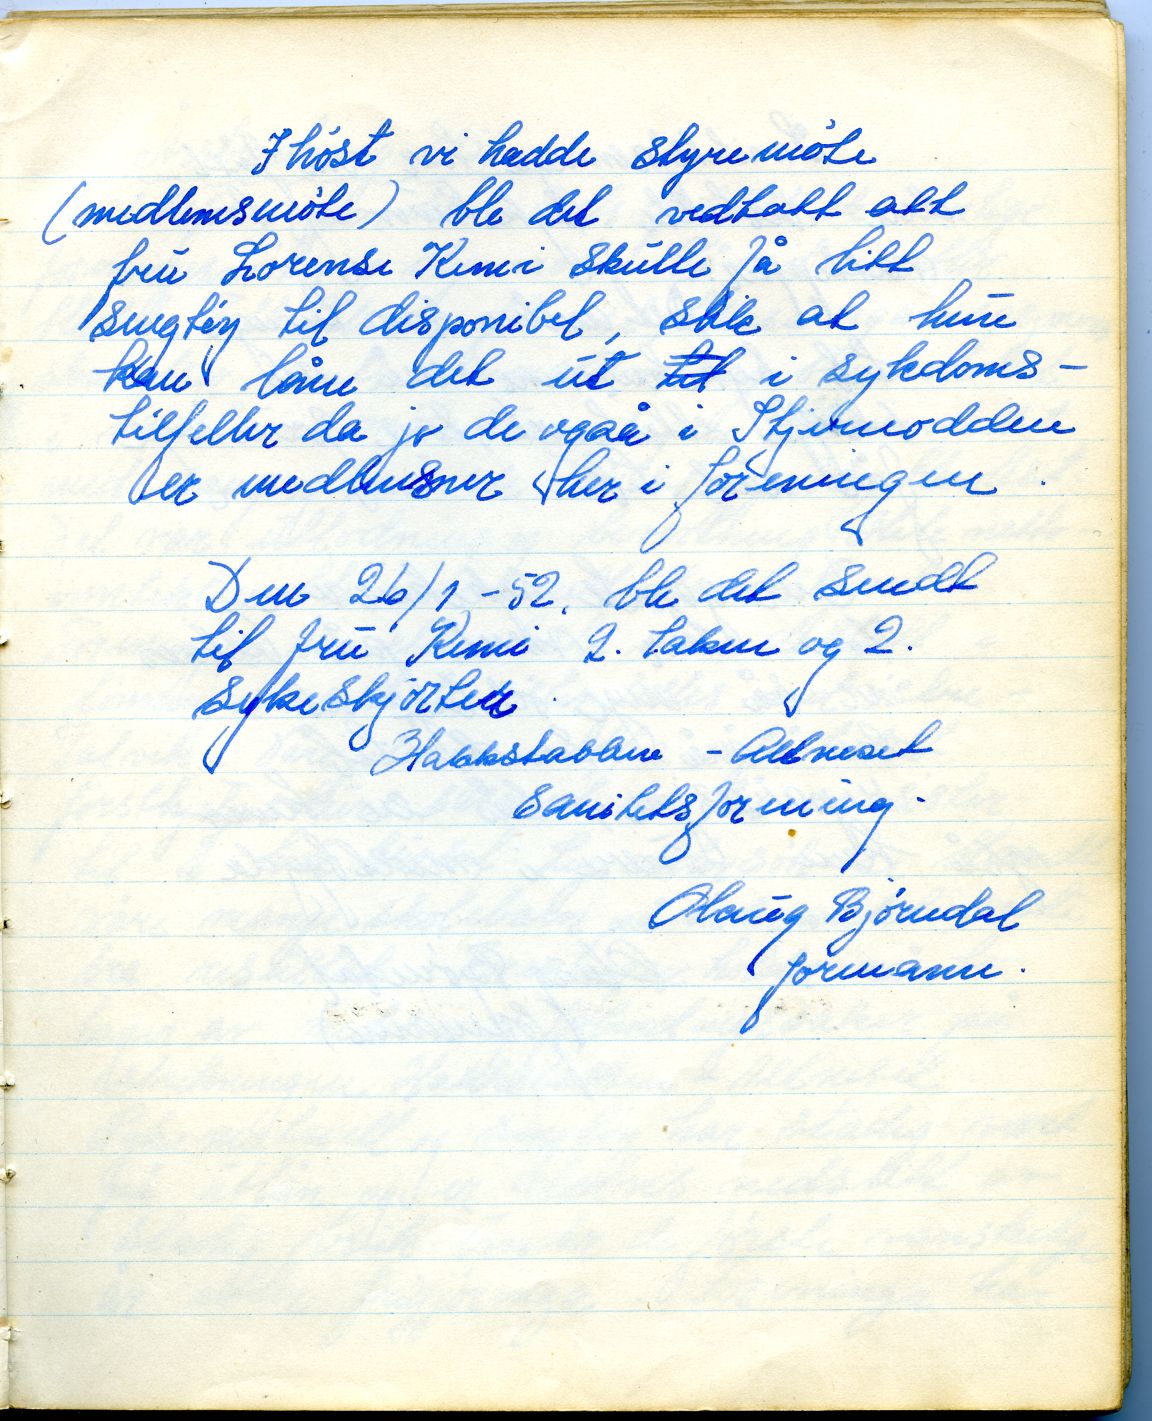 I höst vi hadde styremöte
(medlemsmöte) ble det vedtatt att
fru Lorense Kemi skulle få litt
sengtöy til disponibel, slik at hun
kan låne det ut til i sykdoms-
tilfeller da jo de ogaå i Stjernodden
er medlemsner her i foreningen.
Den 26/1-52. ble det sendt
til fru Kemi 2. laken og 2.
sykeskjorter.
Hakkstabben - Altneset
Sanitetsforening.
Olaug Björndal
formann.